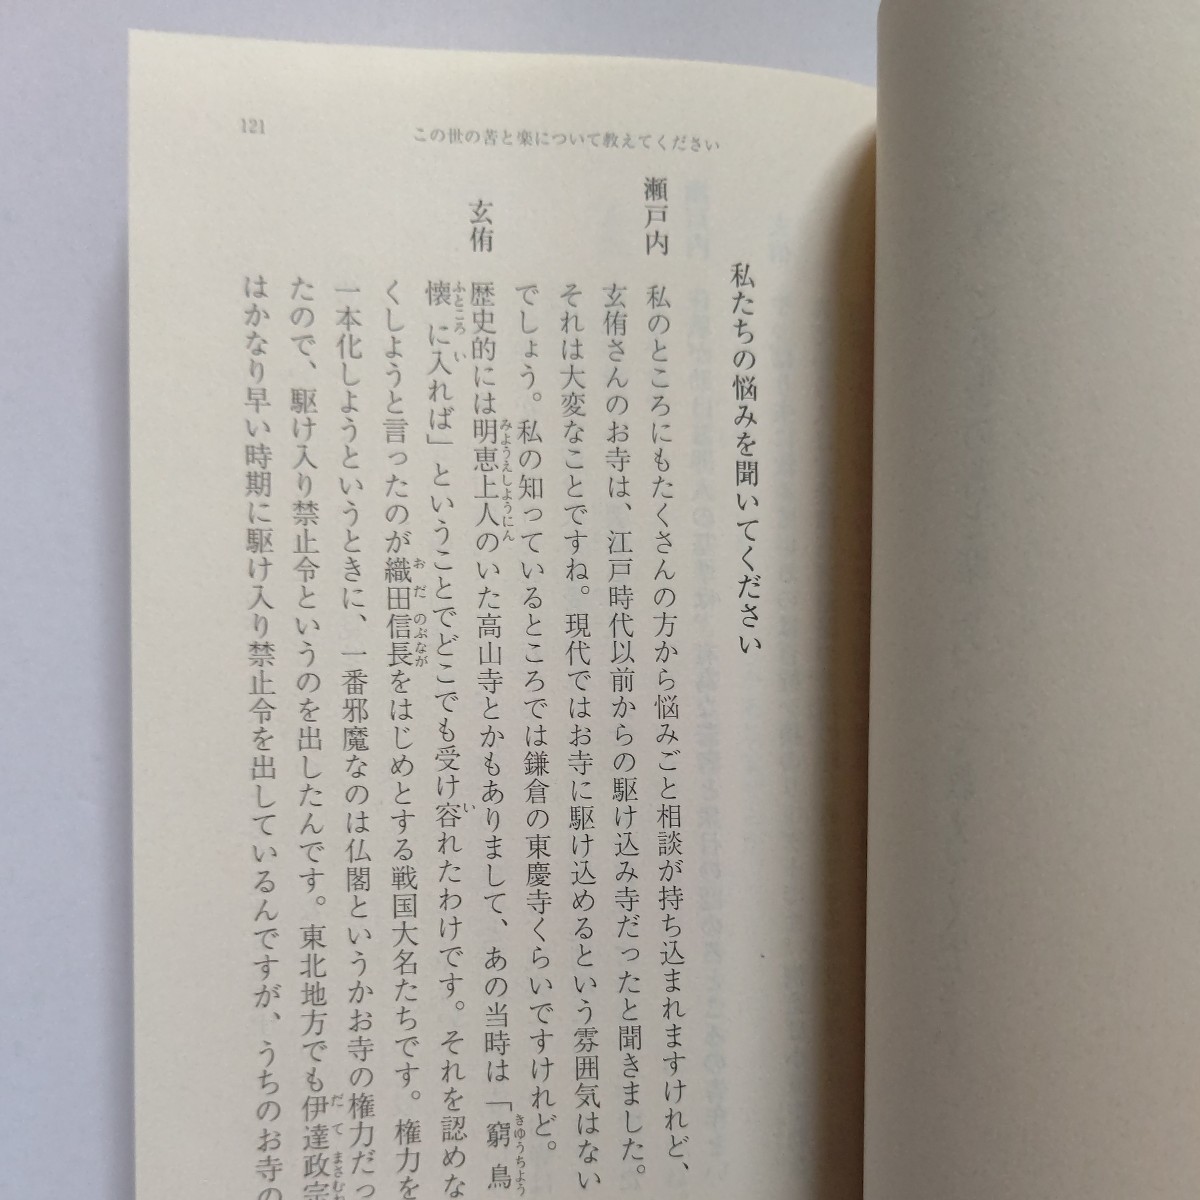 121
この世の苦と楽について教えてください
私たちの悩みを聞いてください
瀬戸内　私のところにもたくさんの方から悩みごと相談が持ち込まれますけれど、
玄侑さんのお寺は、江戸時代以前からの駆け込み寺だったと聞きました。
それは大変なことですね。現代ではお寺に駆け込めるという雰囲気はない
でしょう。私の知っているところでは鎌倉の東慶寺くらいですけれど。
玄侑　歴史的には明恵上人のいた高山寺とかもありまして、あの当時は「窮鳥
懐に入れば」ということでどこでも受け容れたわけです。それを認めな
くしようと言ったのが織田信長をはじめとする戦国大名たちです。権力を
一本化しようというときに、一番邪魔なのは仏閣というかお寺の権力だっ
たので、駆け入り禁止令というのを出したんです。東北地方でも伊達政宗
はかなり早い時期に駆け入り禁止令を出しているんですが、うちのお寺の